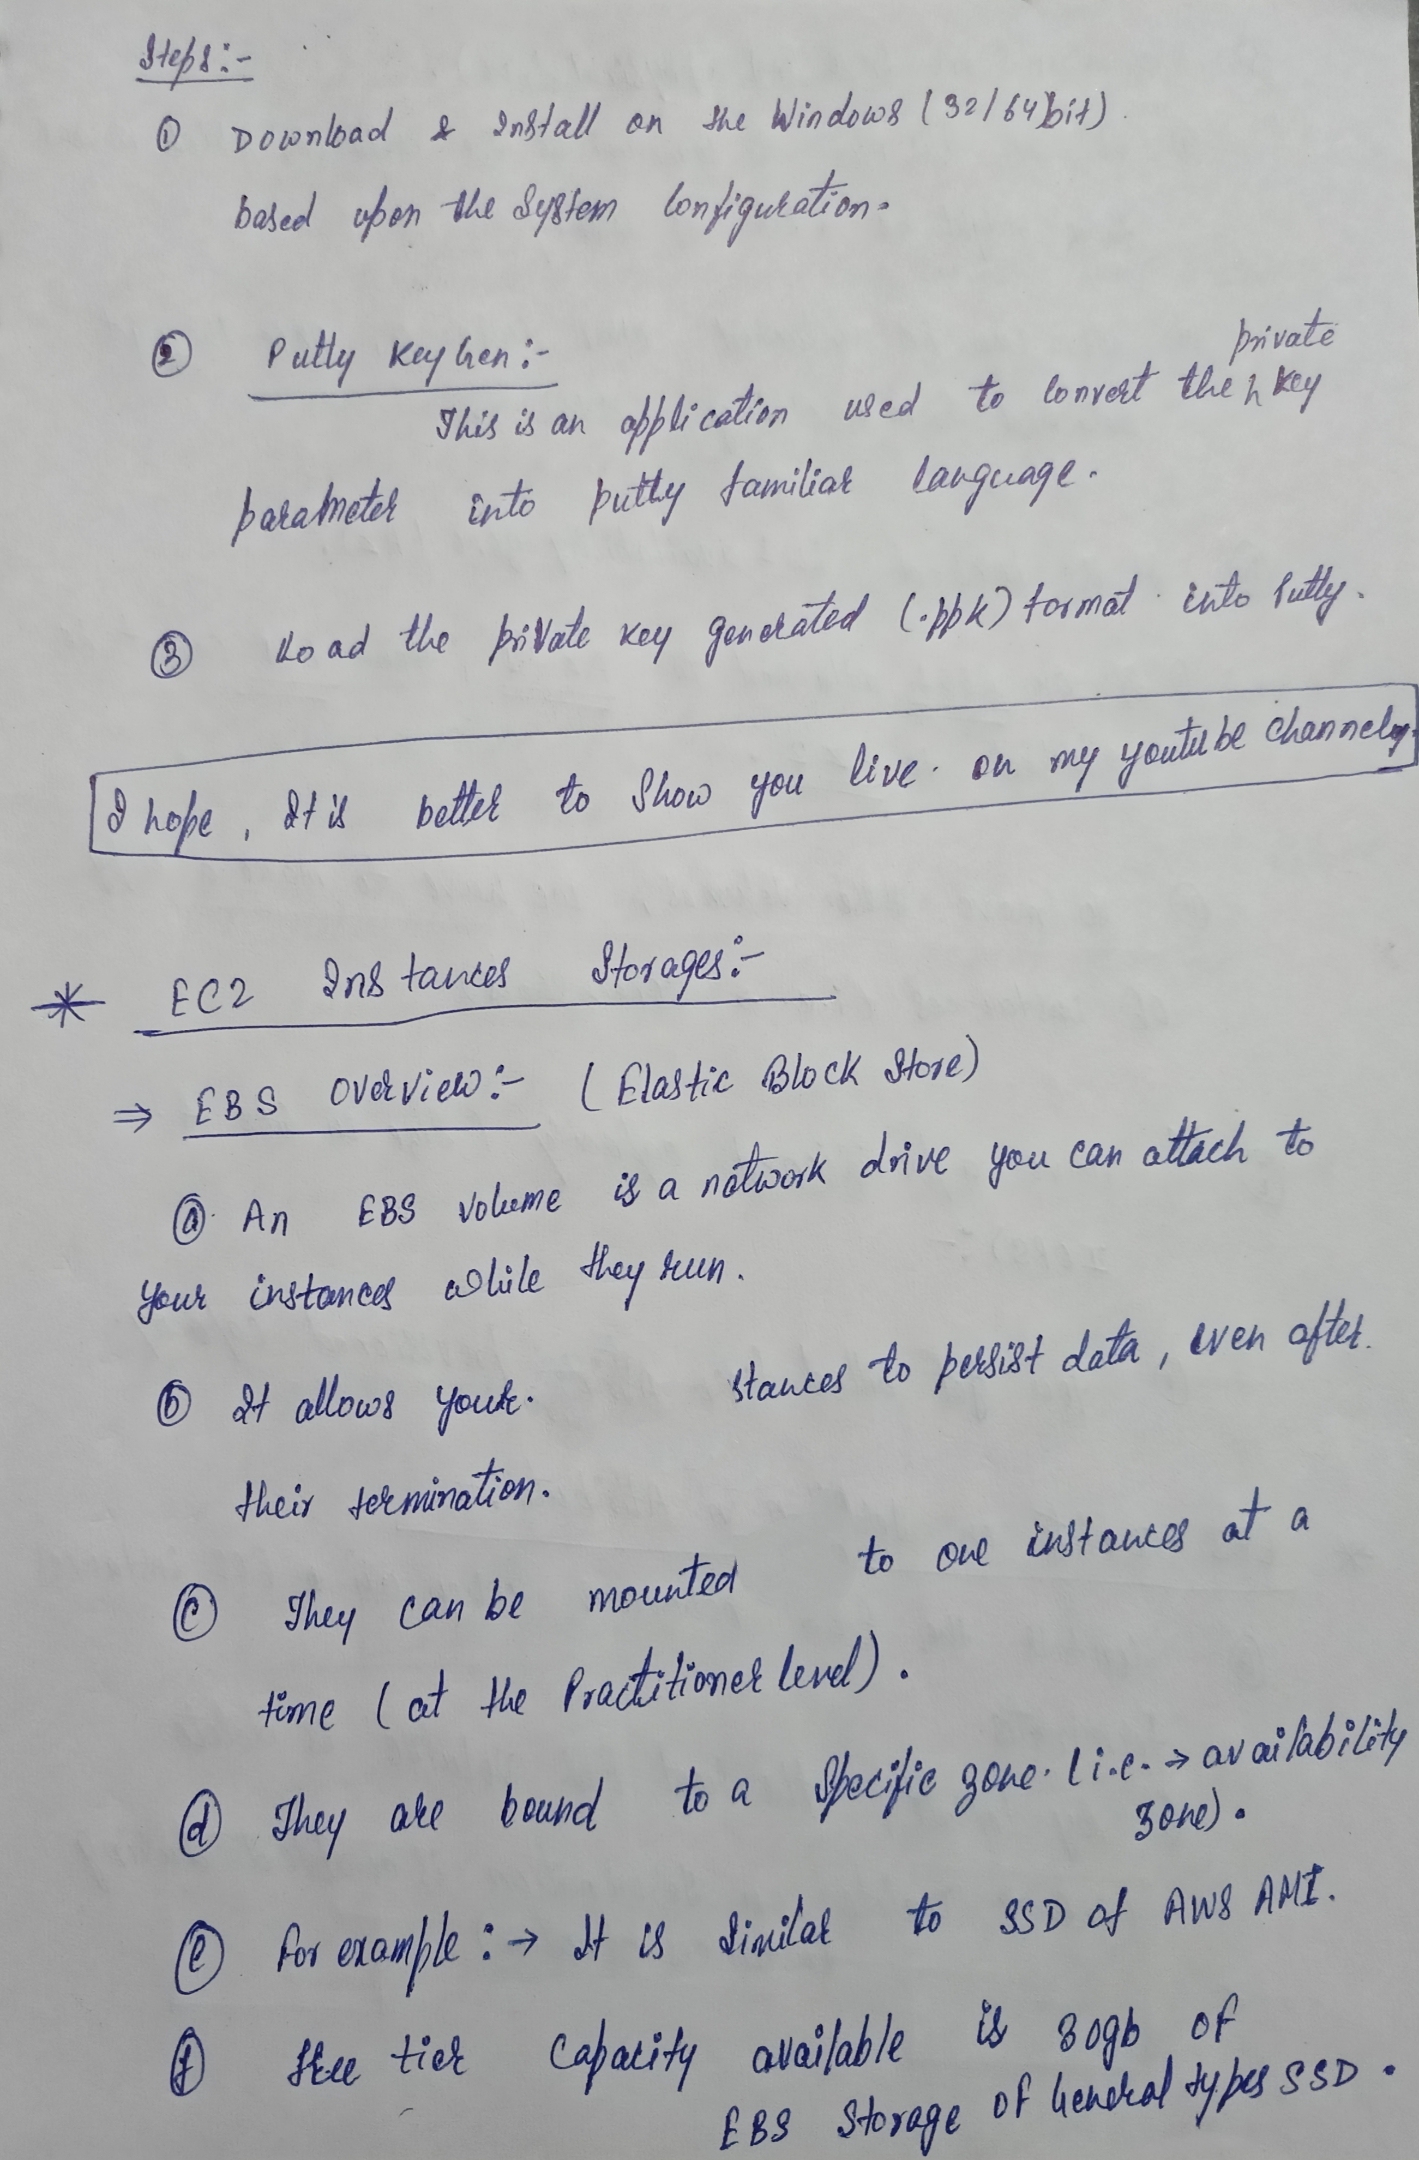 Steps:-
① Download & Install on the Windows (32/64)bit)
based upon the System Configuration.
② Putty KeyGen:-
private
This is an application used to convert the key
parameter into putty familiar language.
③ Load the private key generated (.ppk) format into Putty.
I hope, It is better to Show you live. on my youtube channel
* EC2 Instances Storages:-
⇒ EBS overview:- (Elastic Block Store)
ⓐ An EBS volume is a network drive you can attach to
your instances while they run.
ⓑ It allows your. stances to persist data, even after.
their termination.
ⓒ They can be mounted to one instances at a
time (at the Practitioner level).
ⓓ They are bound to a Specific zone. (i.e. → availability
zone).
ⓔ for example :→ It is Similar to SSD of AWS AMI.
ⓕ free tier Capacity available is 30gb of
EBS Storage of General types SSD.